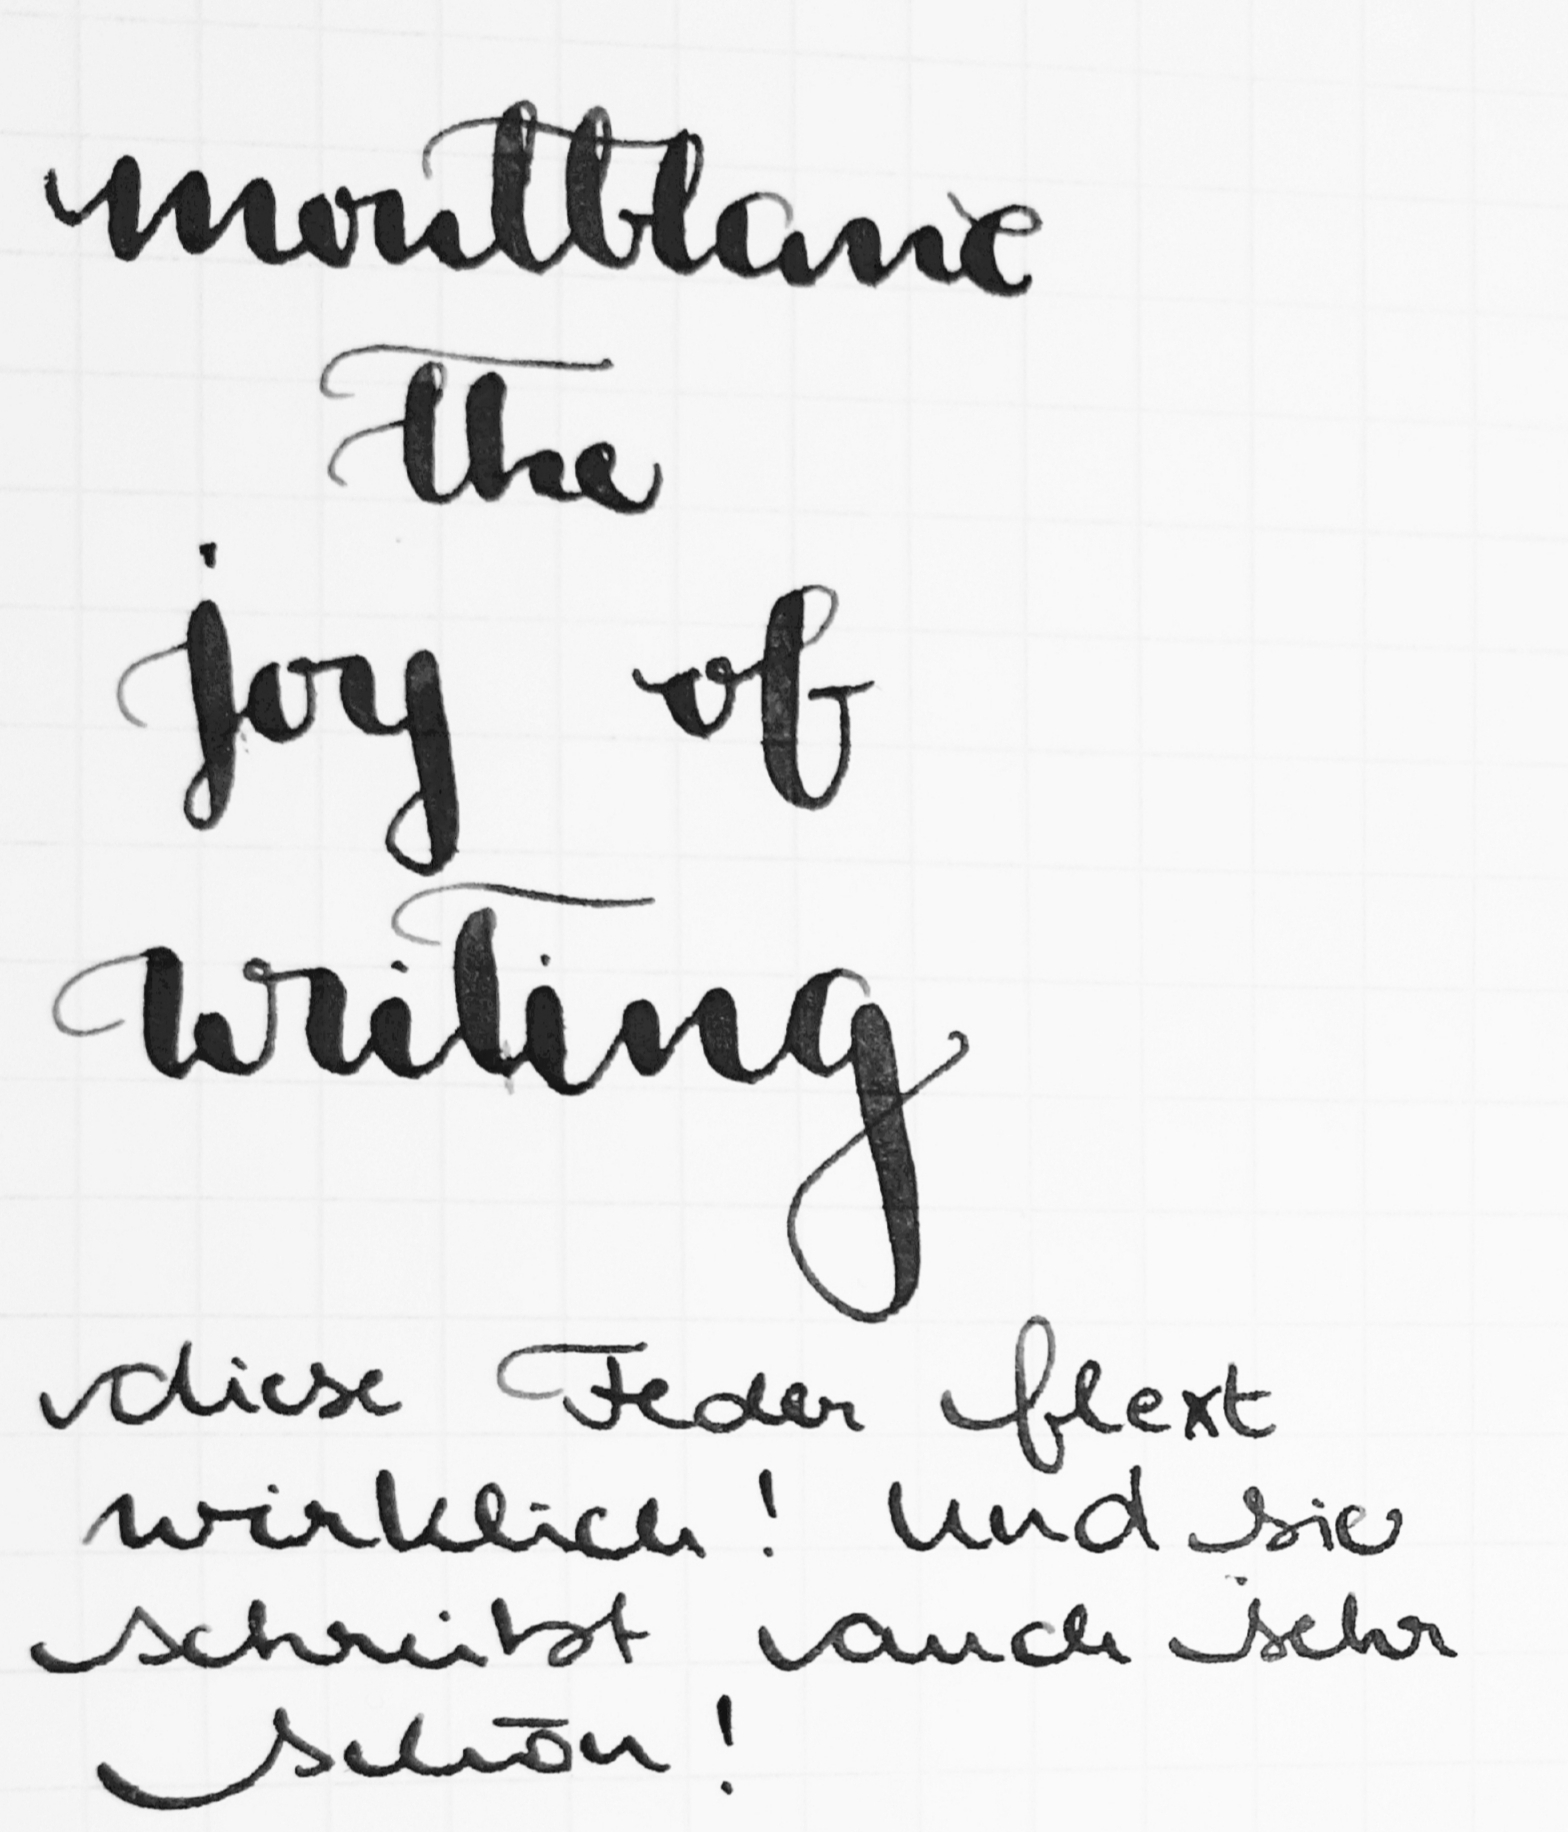 montblanc
the
joy of
writing
diese Feder flext
wirklich! Und sie
schreibt auch sehr
schön!